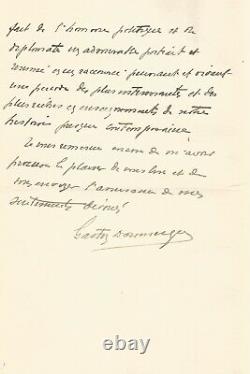 fait de l'homme politique et du
diplomate un admirable portrait et
résumé et raconné pensant et vivant
une période des plus intéressants et des
plus riches en enseignements de notre
histoire presque contemporaine.
Je vous remercie encore de m'avoir
procuré le plaisir de vous lire et de
vous envoyer l'assurance de mes
sentiments dévoués
Gaston Doumergue